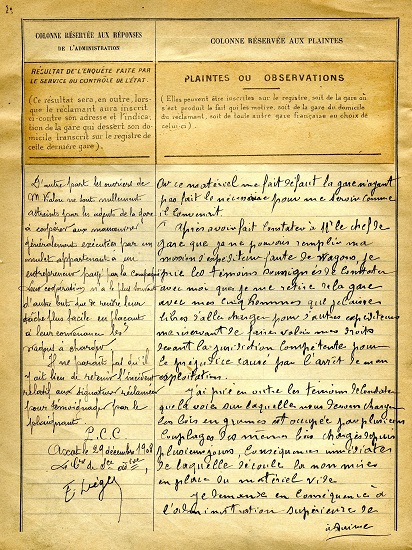 29
COLONNE RÉSERVÉE AUX RÉPONSES
DE L'ADMINISTRATION
RÉSULTAT DE L'ENQUÊTE FAITE PAR
LE SERVICE DU CONTRÔLE DE L'ÉTAT
(Ce résultat sera, en outre, lors-
que le réclamant aura inscrit
ci-contre son adresse et l'indica-
tion de la gare qui dessert son
domicile transcrit sur le registre de
cette dernière gare).
D'autre part les ouvriers de
M. Vialou ne sont nullement
astreints par les agents de la gare
à coopérer aux manœuvres
généralement exécutées par un
mulet appartenant à un
entrepreneur payé par la Compagnie
leur coopération n'a le plus souvent
d'autre but que de rendre leur
tâche plus facile en plaçant
à leur convenance les
wagons à charger.
Il ne paraît pas qu'il
y ait lieu de retenir l'incident
relatif aux signatures réclamées
pour témoignage par le
plaignant
P.C.C
le 29 décembre 1908
COLONNE RÉSERVÉE AUX PLAINTES
PLAINTES OU OBSERVATIONS
(Elles peuvent être inscrites sur le registre, soit de la gare où
s'est produit le fait qui les motive, soit de la gare du domicile
du réclamant, soit de toute autre gare française au choix de
celui-ci.)
Or ce matériel me fait défaut la gare n'ayant
pas fait le nécessaire pour me servir comme
il convient.
Après avoir fait constater à Mr le chef de
gare que je ne pouvais remplir ma
mission d'expéditeur faute de wagons, je
prie les témoins soussignés de constater
avec moi que je me retire de la gare
avec mes cinq hommes que je laisse
libres d'aller charger pour d'autres expéditeurs
me réservant de faire valoir mes droits
devant la juridiction compétente pour
le préjudice causé par l'arrêt de mon
exploitation.
J'ai prié en outre les témoins de constater
que la voie sur laquelle nous devons charger
les bois en grumes est occupée par plusieurs
couplages des mêmes bois chargés depuis
plusieurs jours, conséquence immédiate
de laquelle découle la non mise
en place du matériel vide.
Je demande en conséquence à
l'administration supérieure de